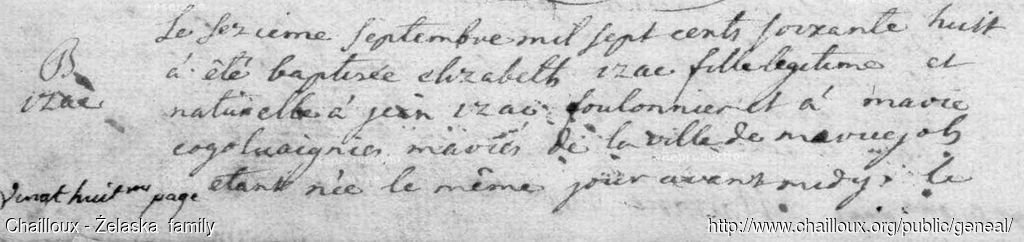 Le sezieme septembre mil sept cents soixante huit
B
izac
à été baptisée elizabeth izac fille legitime et
naturelle à jean izac foulonnier et à marie
mariés de la ville de maruejols
etant née le même jour avant midy. le
vingt huit page
Chailloux - Żelaska family
http://www.chailloux.org/public/geneal/